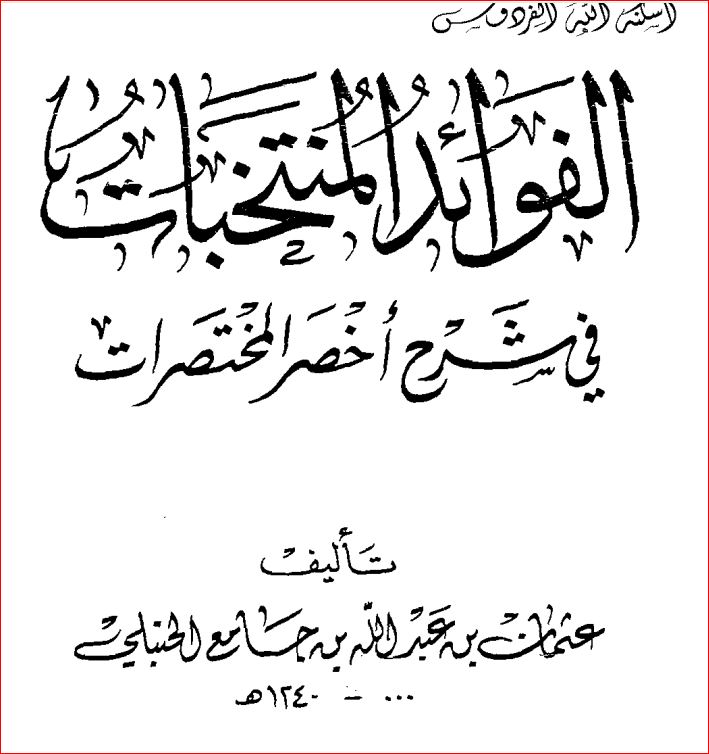 أسكنه الله الفردوس
الفوائد المنتخبات
في شرح أخصر المختصرات
تأليف
عثمان بن عبد الله بن جامع الحنبلي
... – ١٢٤٠هـ